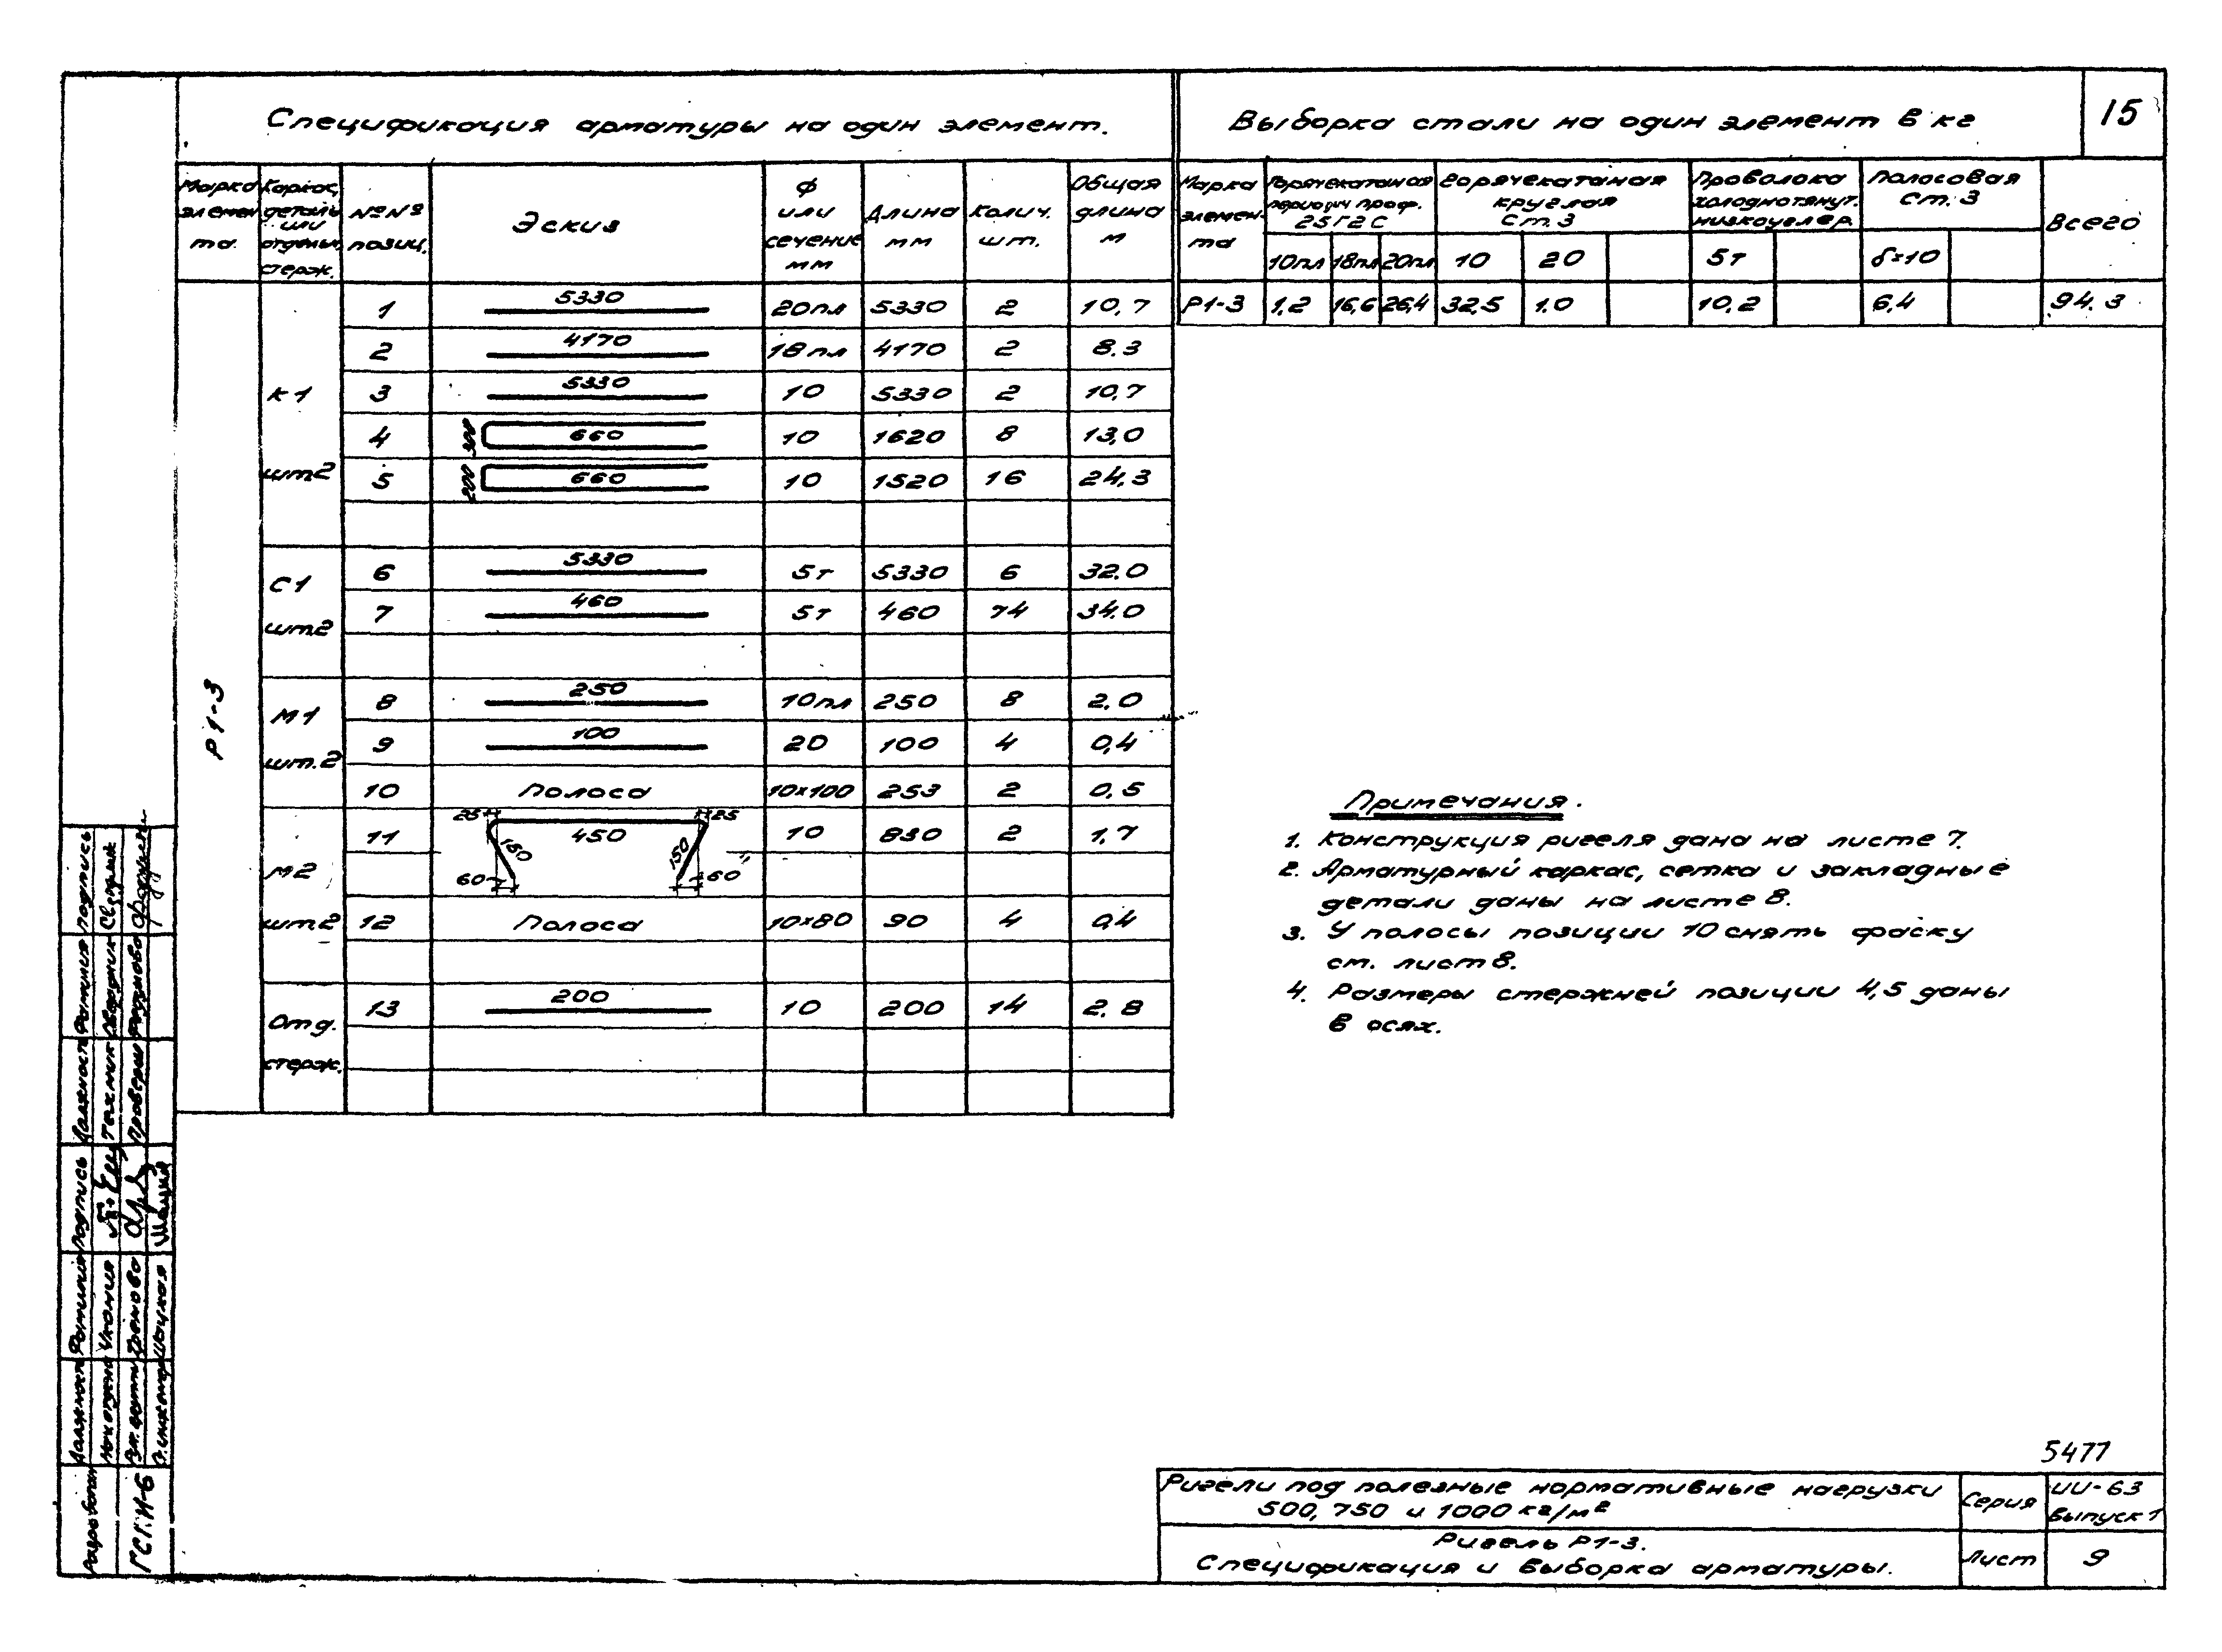 Спецификация арматуры на один элемент.
Выборка стали на один элемент в кг
15
Марка элемен та
Каркас, деталь или отдельн. стерж.
№№ позиц.
Эскиз
Ф или сечение мм
Длина мм
Колич. шт.
Общая длина м
Р1-3
К1 шт2
1 5330 20пл 5330 2 10,7
2 4170 18пл 4170 2 8.3
3 5330 10 5330 2 10,7
4 300 660 10 1620 8 13,0
5 200 660 10 1520 16 24,3
С1 шт2
6 5330 5т 5330 6 32.0
7 460 5т 460 74 34.0
М1 шт.2
8 250 10пл 250 8 2.0
9 100 20 100 4 0,4
10 Полоса 10х100 253 2 0,5
М2 шт2
11 25 450 25 150 150 60 60 10 830 2 1,7
12 Полоса 10×80 90 4 0,4
Отд. стерж.
13 200 10 200 14 2.8
Марка элемен- та
Горячекатаная период. проф. 25Г2С
Горячекатаная круглая Ст.3
Проволока холоднотянут. низкоуглер.
Полосовая Ст.3
Всего
10пл 18пл 20пл 10 20 5т δ=10
Р1-3 1,2 16,6 26,4 32,5 1.0 10,2 6,4 94.3
Примечания.
1. Конструкция ригеля дана на листе 7.
2. Арматурный каркас, сетка и закладные
детали даны на листе 8.
3. У полосы позиции 10 снять фаску
см. лист 8.
4. Размеры стержней позиции 4,5 даны
в осях.
5477
Ригели под полезные нормативные нагрузки
500, 750 и 1000 кг/м²
Серия
ИИ-63
Выпуск 1
Ригель Р1-3.
Спецификация и выборка арматуры.
Лист
9
Подпись
Фамилия
Должность
Техник
Проверил
Подпись
Фамилия
Должность
Разработал
ГСПИ-6